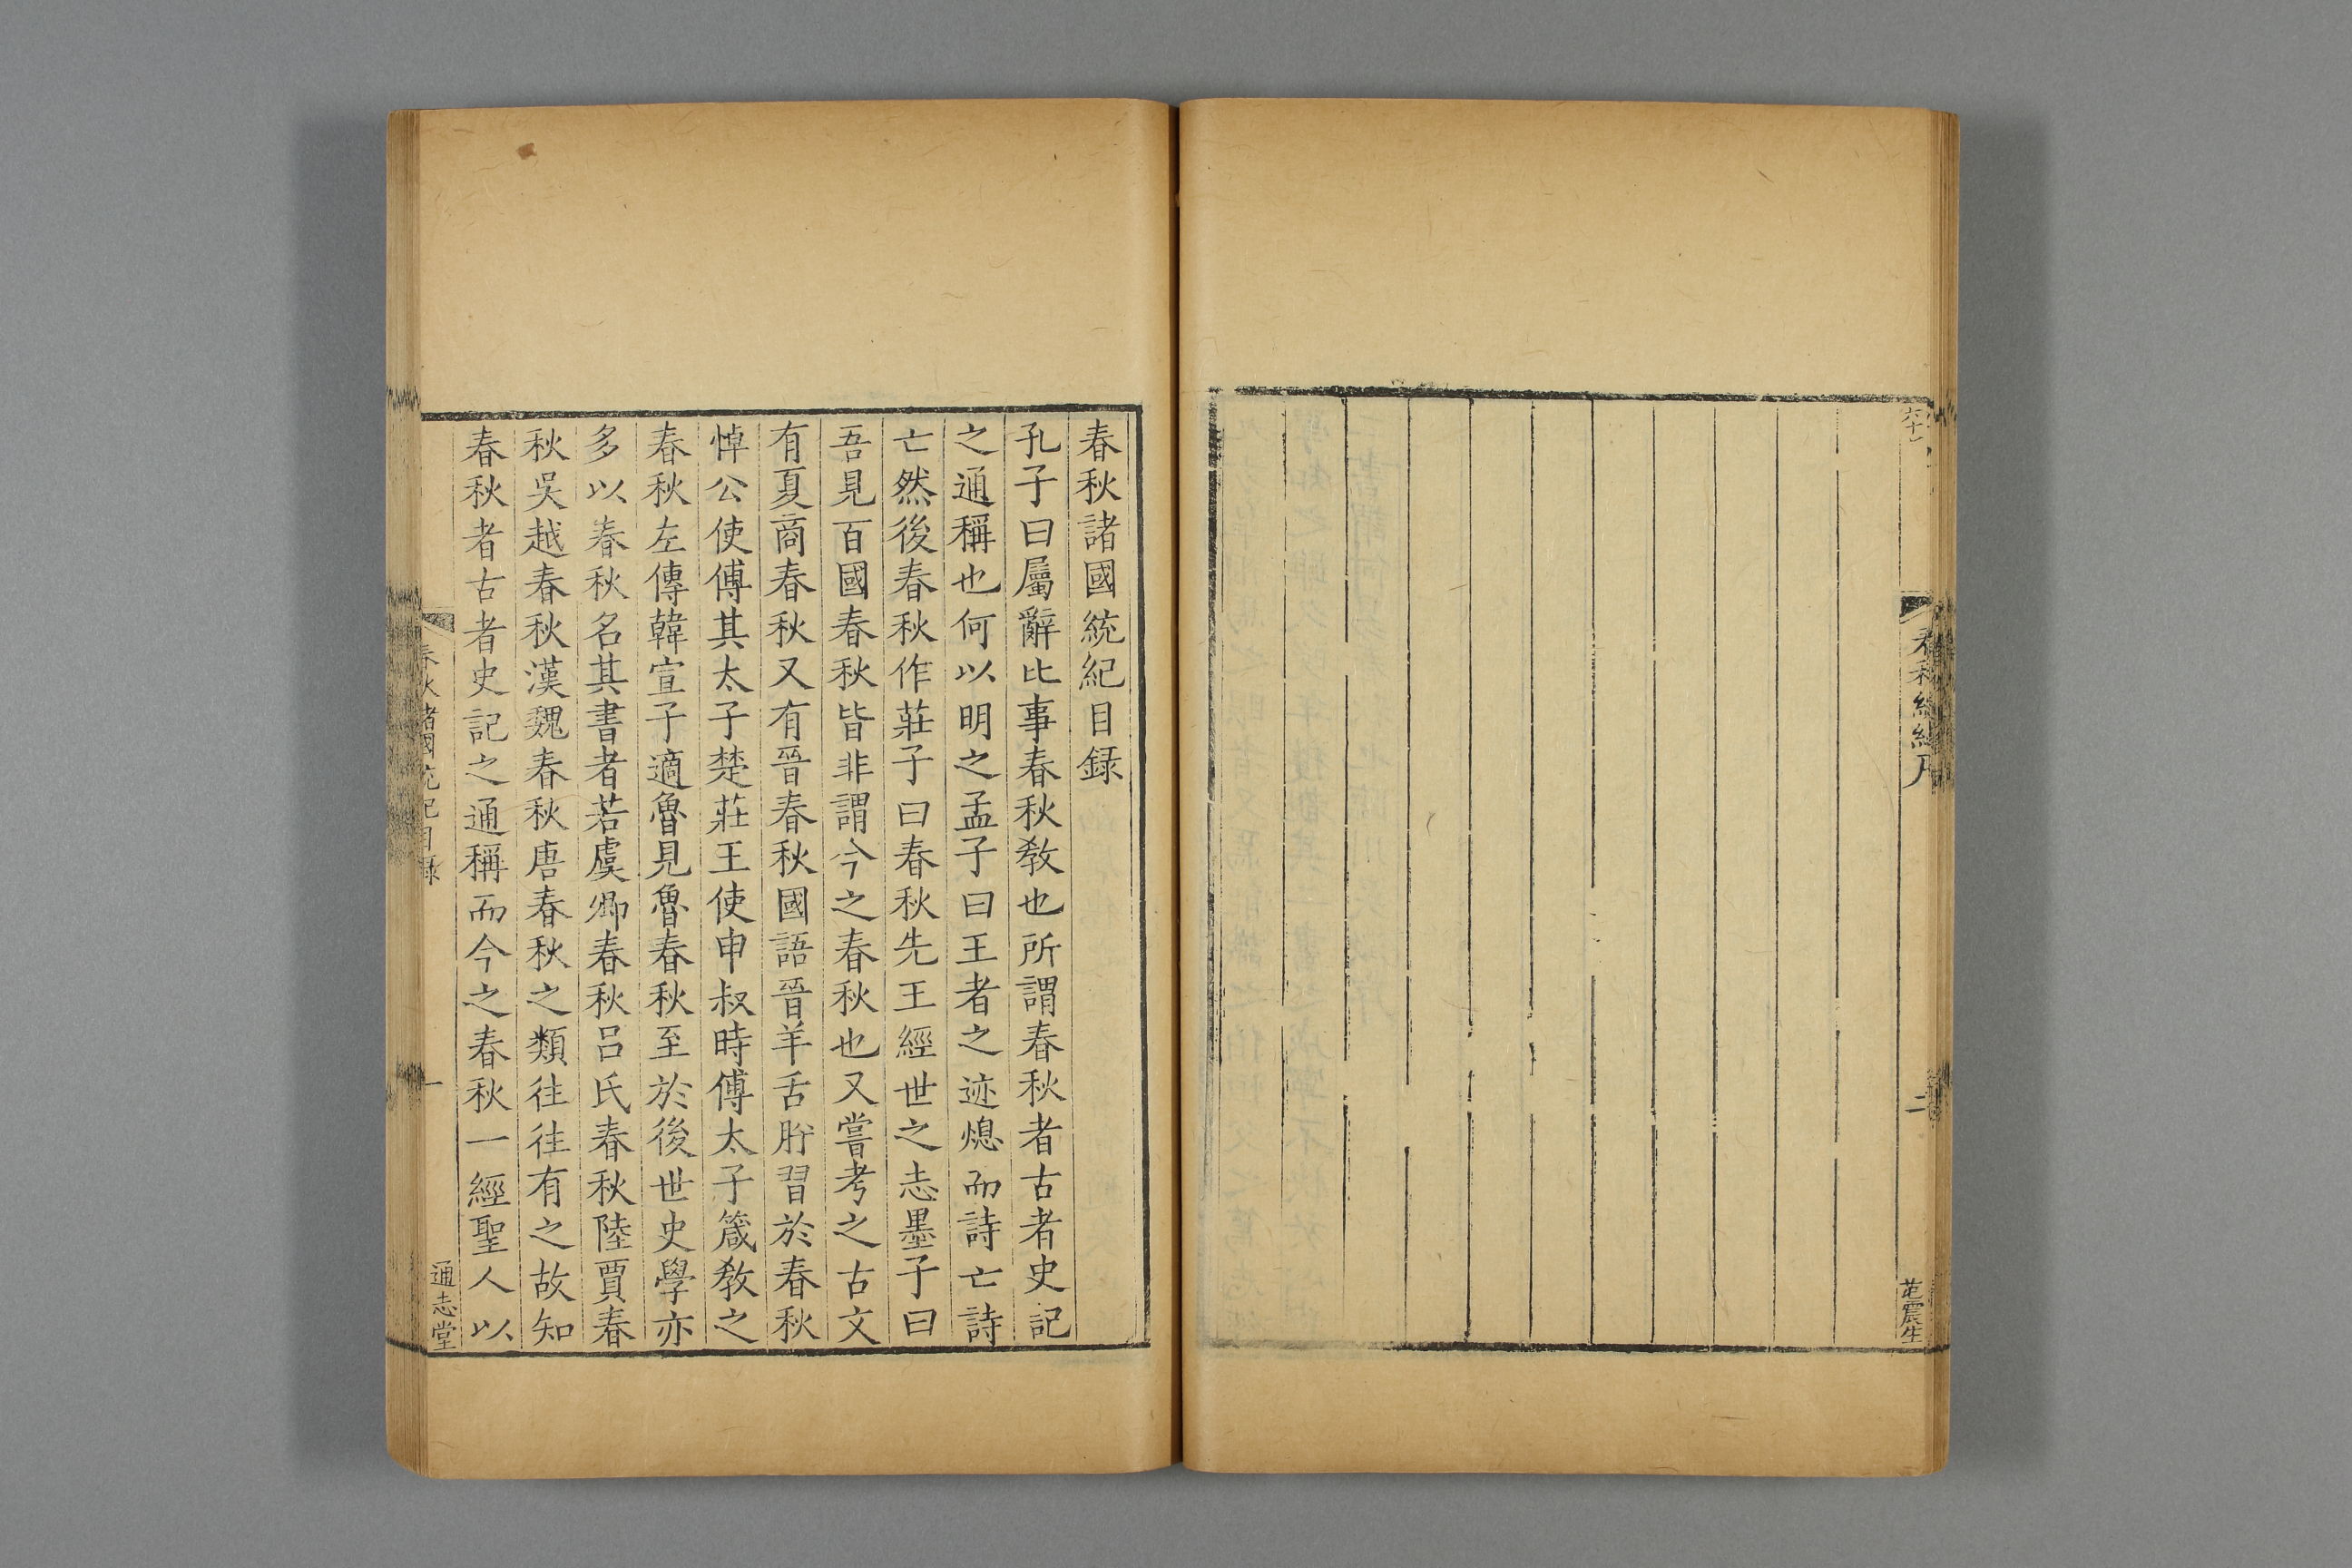 二
春秋諸國統紀目録
孔子曰屬辭比事春秋教也所謂春秋者古者史記
之通稱也何以明之孟子曰王者之迹熄而詩亡詩
亡然後春秋作莊子曰春秋先王經世之志墨子曰
吾見百國春秋皆非謂今之春秋也又嘗考之古文
有夏商春秋又有晉春秋國語晉羊舌肸習於春秋
悼公使傅其太子楚莊王使申叔時傅太子箴教之
春秋左傳韓宣子適魯見魯春秋至於後世史學亦
多以春秋名其書者若虞卿春秋呂氏春秋陸賈春
秋吳越春秋漢魏春秋唐春秋之類往往有之故知
春秋者古者史記之通稱而今之春秋一經聖人以
春秋諸國統紀目録
一
通志堂